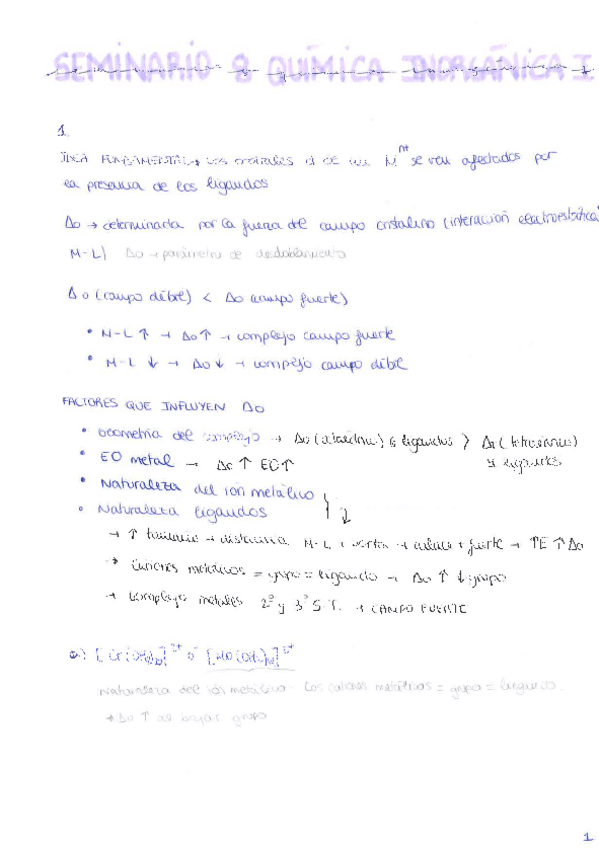 SEMINARIO 8 QUÍMICA INORGÁNICA I
1.
IDEA FUNDAMENTAL → Los orbitales d de un M^n+ se ven afectados por
la presencia de los ligandos
Δo → determinada por la fuerza del campo cristalino (interacción electrostática
M-L) Δo → parámetro de desdoblamiento
Δo (campo débil) < Δo (campo fuerte)
• M-L ↑ → Δo ↑ → complejo campo fuerte
• M-L ↓ → Δo ↓ → complejo campo débil
FACTORES QUE INFLUYEN Δo
• Geometría del complejo → Δo (octaédrico) 6 ligandos > Δt (tetraédrico)
4 ligandos
• EO metal → Δo ↑ EO ↑
• Naturaleza del ion metálico
• Naturaleza ligandos
→ ↑ tamaño → distancia M-L + corta → enlace + fuerte → ↑E ↑Δo
→ Cationes metálicos = grupo = ligando → Δo ↑ ↓ grupo
→ Complejos metales 2ª y 3ª S.T. → CAMPO FUERTE
a) [Cr(OH₂)₆] ó [Mo(OH₂)₆]
Naturaleza del ión metálico. Los cationes metálicos = grupo =
→ Δo ↑ al bajar grupo
1